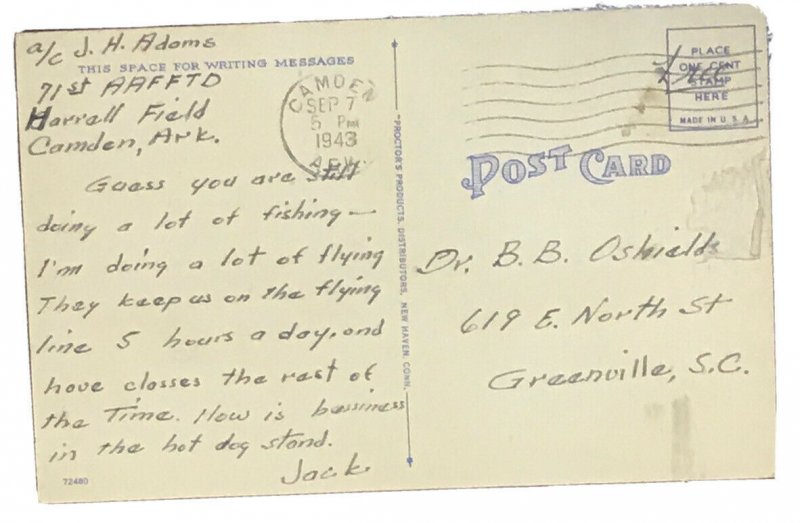 a/c J. H. Adams
THIS SPACE FOR WRITING MESSAGES
71st AAFFTD
Harrell Field
Camden, Ark.
Guess you are still
doing a lot of fishing —
I'm doing a lot of flying
They keep us on the flying
line 5 hours a day, and
have classes the rest of
the Time. How is bussiness
in the hot dog stand.
Jack
72480
CAMDEN
SEP 7
5 PM
1943
ARK.
"PROCTOR'S PRODUCTS, DISTRIBUTORS, NEW HAVEN, CONN.
PLACE
ONE CENT
STAMP
HERE
MADE IN U.S.A.
Free
POST CARD
Dr. B. B. Oshields
619 E. North St
Greenville, S.C.